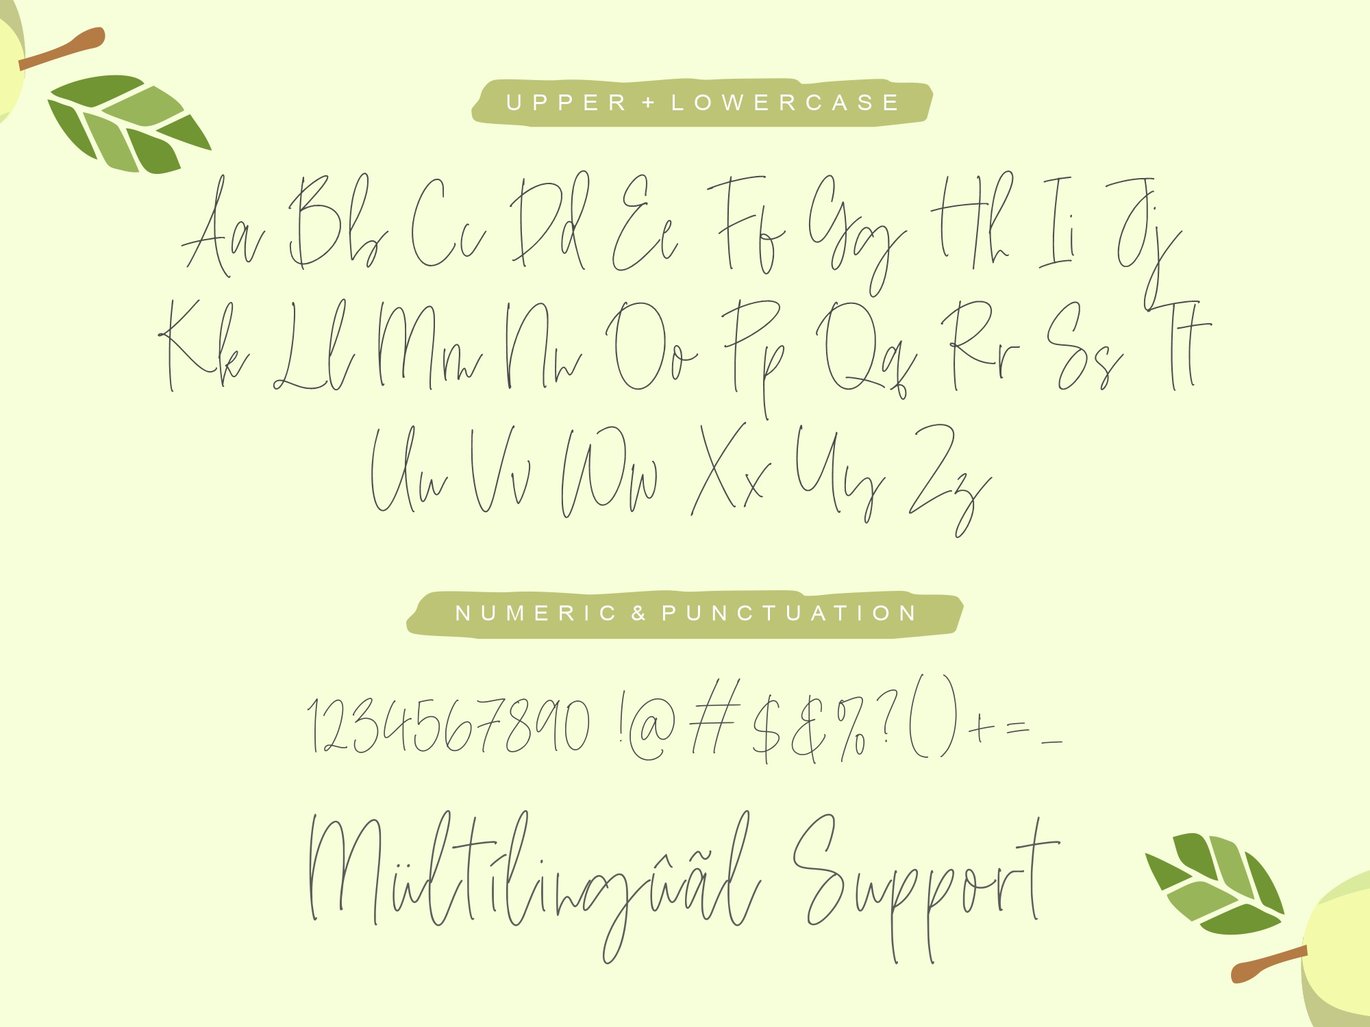 UPPER + LOWERCASE
Aa Bb Cc Dd Ee Ff Gg Hh Ii Jj
Kk Ll Mm Nn Oo Pp Qq Rr Ss Tt
Uu Vv Ww Xx Yy Zz
NUMERIC & PUNCTUATION
1234567890 !@#$&%?()+=_
Mültílingûãl Support